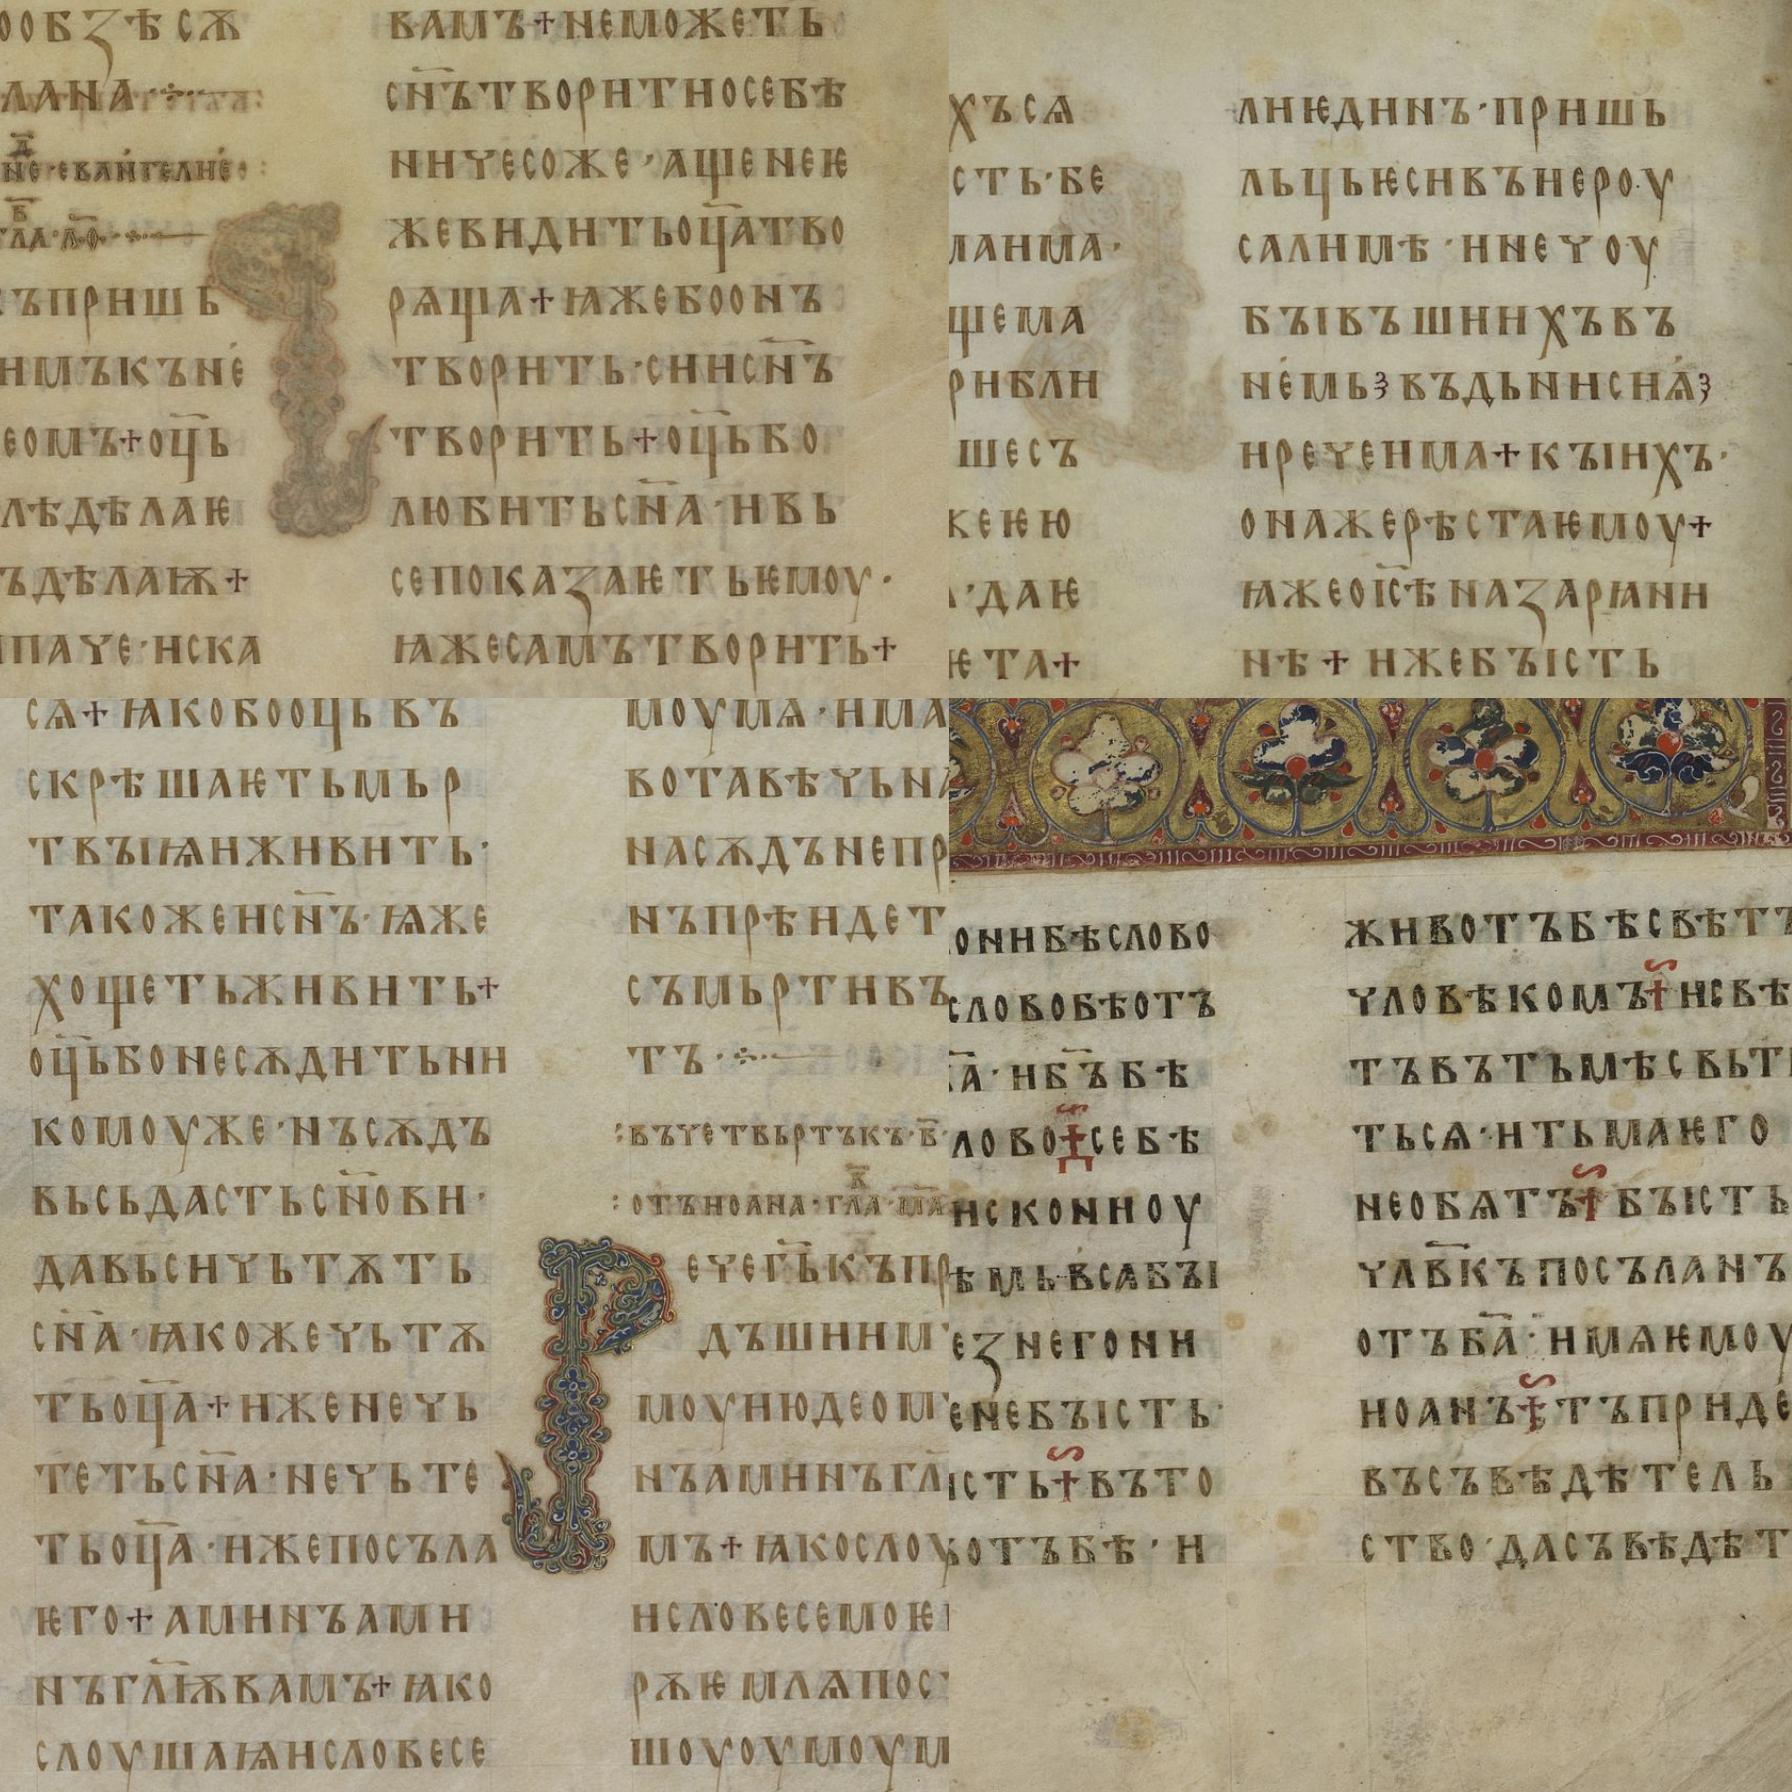 ообꙁѣсѧ
лана
не·еваньгелие
гла·л҃о·
ъпришь
имъкъне
еомъ+оц҃ь
лѣдѣлаѥ
ъдѣлаѭ+
паче·иска
вамъ+неможеть
сн҃ътворитиосебѣ
ничесоже·ащенеѥ
жевидитьоц҃атво
рѧща+ꙗжебоонъ
творить·сиисн҃ъ
творить+оц҃ьбо
любитьсн҃а·ивь
сепоказаѥтьѥмоу·
ꙗжесамътворить+
хъсѧ
сть·бе
лаима·
щема
риближи
шесъ
кеѥю
·даѥ
ѥта+
лиѥдинъ·пришь
льцьѥсивъѥроу
салимѣ·ннечоу
бꙑвъшиихъвъ
немьвъдьнисиꙗ
ꙇречеꙇма+кꙑихъ·
онажерѣстаѥмоу+
ꙗжеоіс҃ѣназарꙗни
нѣ+ижебꙑсть
сѧ+ꙗкобооць въ
скрѣшаѥтьмьр
твꙑѩиживить·
такожеисн҃ъ·ѩже
хощетьживить+
оц҃ьбонесѫдитьни
комоуже·нъсѫдъ
вьсьдастьсн҃ови·
давьсичьтѫть
сн҃а·ꙗкожечьтѫ
тьоц҃а+иженечь
тетьсн҃а·нечьте
тьоц҃а·ижепосъла
ѥго+аминъами
нъгл҃ѭвамъ+ꙗко
слоушаѩисловесе
моумѧ·има
вотавѣчьна
насѫдънепр
нъпрѣидет
съмьртивъ
тъ·
въчетвьртъкъ·в҃·
отъиоана·гла
ечегь҃къпр
дъшиим
моуиюдеом
нъаминъгл
мъ+ꙗкослоу
исловесемоѥ
рѫѥмлѧпос
шоуоумоум
онибѣслово
словобѣотъ
а҃·иб҃ъбѣ
лово+себѣ
исконноу
ѣмьвсѧбꙑ
езнегони
енебꙑсть·
сть+въто
вотъбѣ·и
животъбѣсвѣтъ
чловѣкомъ+исвѣ
тъвътьмѣсвьти
тьсѧ·итьмаѥго
необѧтъ+бꙑсть
члв҃къпосъланъ
отъба҃·имѧѥмоу
иоанъ+тъприде
въсъвѣдѣтель
ство·дасъвѣдѣт